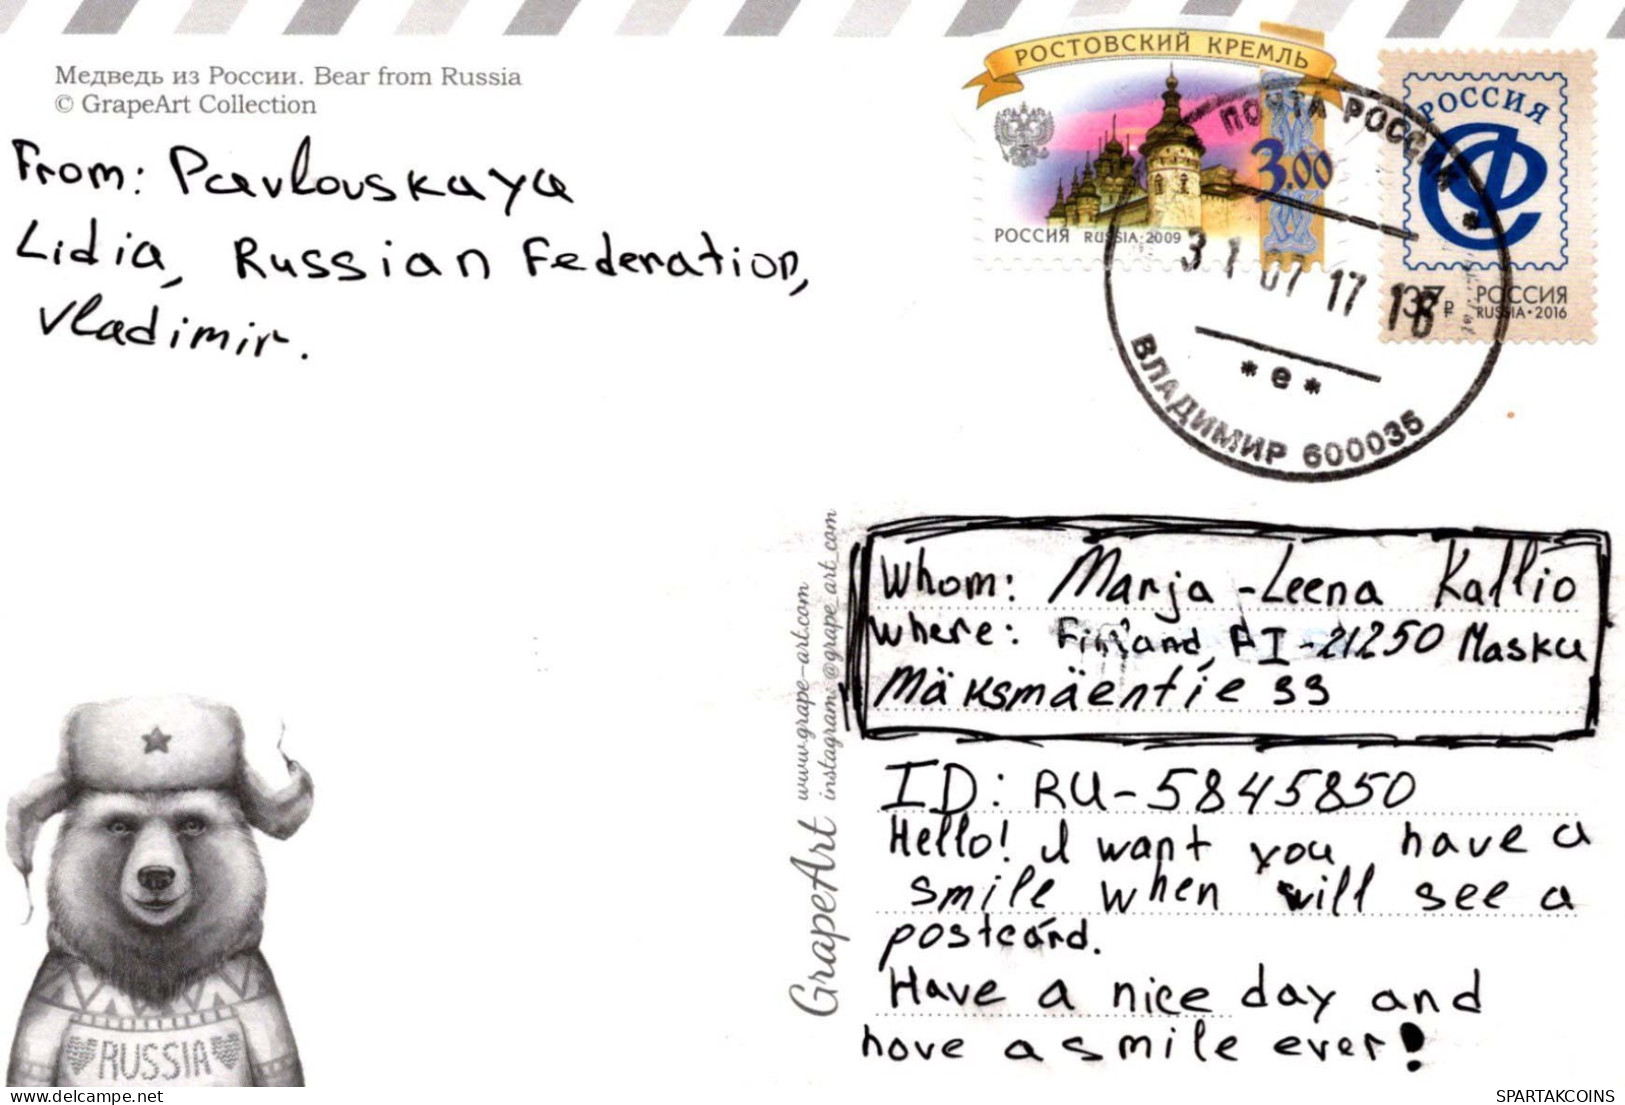 Медведь из России. Bear from Russia
© GrapeArt Collection
From: Pavlovskaya
Lidia, Russian Federation,
Vladimir.
РОСТОВСКИЙ КРЕМЛЬ
3.00
РОССИЯ RUSSIA·2009
РОССИЯ
37 ₽
РОССИЯ
RUSSIA·2016
ПОЧТА РОССИИ
31 07 17 18
* е *
ВЛАДИМИР 600035
Whom: Marja-Leena Kallio
Where: Finland, FI-21250 Masku
Mäksmäentie 33
ID: RU-5845850
Hello! I want you have a
smile when will see a
postcard.
Have a nice day and
have a smile ever!
GrapeArt www.grape-art.com
instagram: @grape_art_com
RUSSIA
delcampe.net
SPARTAKCOINS